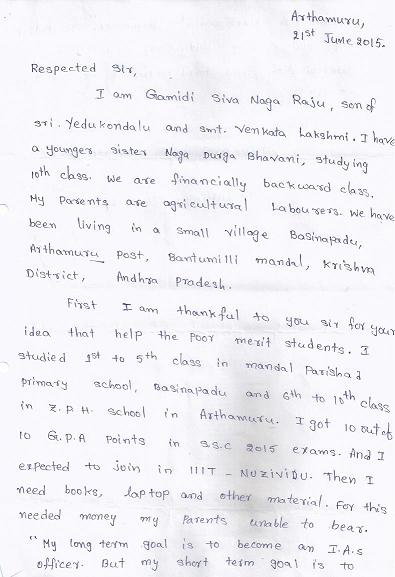 Arthamuru,
21st June 2015.
Respected Sir,
I am Gamidi Siva Naga Raju, son of
sri. Yedukondalu and smt. Venkata Lakshmi. I have
a younger sister Naga Durga Bhavani, studying
10th class. We are financially backward class.
My Parents are agricultural Labourers. We have
been living in a small village Basinapadu,
Arthamuru post, Bantumilli mandal, Krishna
District, Andhra Pradesh.
First I am thankful to you sir for your
idea that help the Poor merit students. I
studied 1st to 5th class in mandal Parishad
primary school, Basinapadu and 6th to 10th class
in Z.P.H. school in Arthamuru. I got 10 out of
10 G.P.A Points in S.S.C 2015 exams. And I
expected to join in IIIT - NUZIVIDU. Then I
need books, laptop and other material. For this
needed money my Parents unable to bear.
"My long term goal is to become an I.A.S
officer. But my short term goal is to